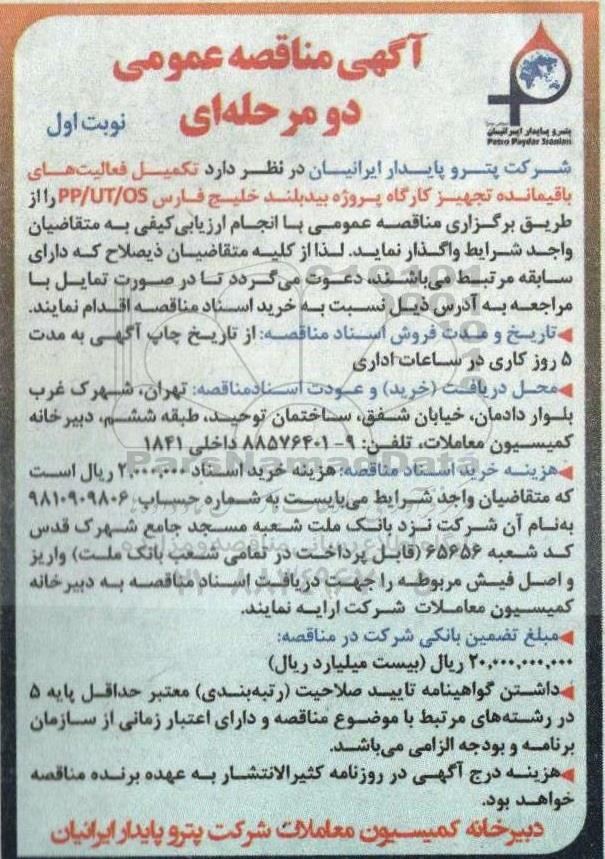 آگهی مناقصه عمومی
دو مرحله‌ای
نوبت اول
پترو پایدار ایرانیان
Petro Paydar Iranian
شرکت پترو پایدار ایرانیان در نظر دارد تکمیل فعالیت‌های
باقیمانده تجهیز کارگاه پروژه بیدبلند خلیج فارس PP/UT/OS را از
طریق برگزاری مناقصه عمومی با انجام ارزیابی‌کیفی به متقاضیان
واجد شرایط واگذار نماید. لذا از کلیه متقاضیان ذیصلاح که دارای
سابقه مرتبط می‌باشند، دعوت می‌گردد تا در صورت تمایل با
مراجعه به آدرس ذیل نسبت به خرید اسناد مناقصه اقدام نمایند.
◀تاریخ و مدت فروش اسناد مناقصه: از تاریخ چاپ آگهی به مدت
۵ روز کاری در ساعات اداری
◀محل دریافت (خرید) و عودت اسنادمناقصه: تهران، شهرک غرب
بلوار دادمان، خیابان شفق، ساختمان توحید، طبقه ششم، دبیرخانه
کمیسیون معاملات، تلفن: ۹- ۸۸۵۷۶۴۰۱ داخلی ۱۸۴۱
ParsNamadData
◀هزینه خرید اسناد مناقصه: هزینه خرید اسناد ۲,۰۰۰,۰۰۰ ریال است
که متقاضیان واجد شرایط می‌بایست به شماره حساب ۹۸۱۰۹۰۹۸۰۶
به‌نام آن شرکت نزد بانک ملت شعبه مسجد جامع شهرک قدس
کد شعبه ۶۵۶۵۶ (قابل پرداخت در تمامی شعب بانک ملت) واریز
و اصل فیش مربوطه را جهت دریافت اسناد مناقصه به دبیرخانه
کمیسیون معاملات شرکت ارایه نمایند.
◀مبلغ تضمین بانکی شرکت در مناقصه:
۲۰,۰۰۰,۰۰۰,۰۰۰ ریال (بیست میلیارد ریال)
◀داشتن گواهینامه تایید صلاحیت (رتبه‌بندی) معتبر حداقل پایه ۵
در رشته‌های مرتبط با موضوع مناقصه و دارای اعتبار زمانی از سازمان
برنامه و بودجه الزامی می‌باشد.
◀هزینه درج آگهی در روزنامه کثیرالانتشار به عهده برنده مناقصه
خواهد بود.
دبیرخانه کمیسیون معاملات شرکت پترو پایدار ایرانیان